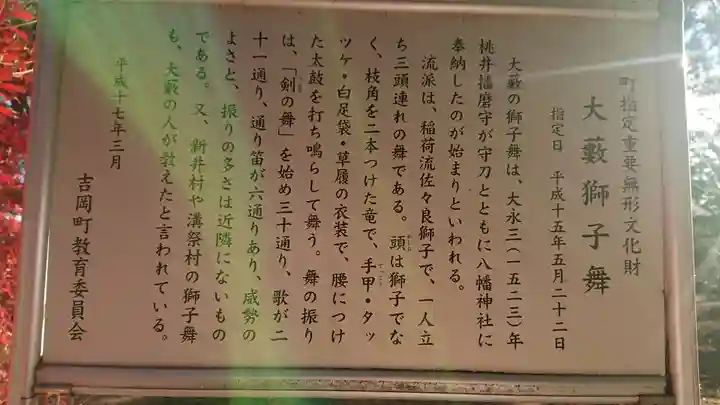 町指定重要無形文化財
大藪獅子舞
指定日　平成十五年五月二十二日
大藪の獅子舞は、大永三（一五二三）年
桃井播磨守が守刀とともに八幡神社に
奉納したのが始まりといわれる。
流派は、稲荷流佐々良獅子で、一人立
ち三頭連れの舞である。頭は獅子でな
く、枝角を二本つけた竜で、手甲・タッ
ツケ・白足袋・草履の衣装で、腰につけ
た太鼓を打ち鳴らして舞う。舞の振り
は、「剣の舞」を始め三十通り、歌が二
十一通り、通り笛が六通りあり、威勢の
よさと、振りの多さは近隣にないもの
である。又、新井村や溝祭村の獅子舞
も、大藪の人が教えたと言われている。
平成十七年三月
吉岡町教育委員会